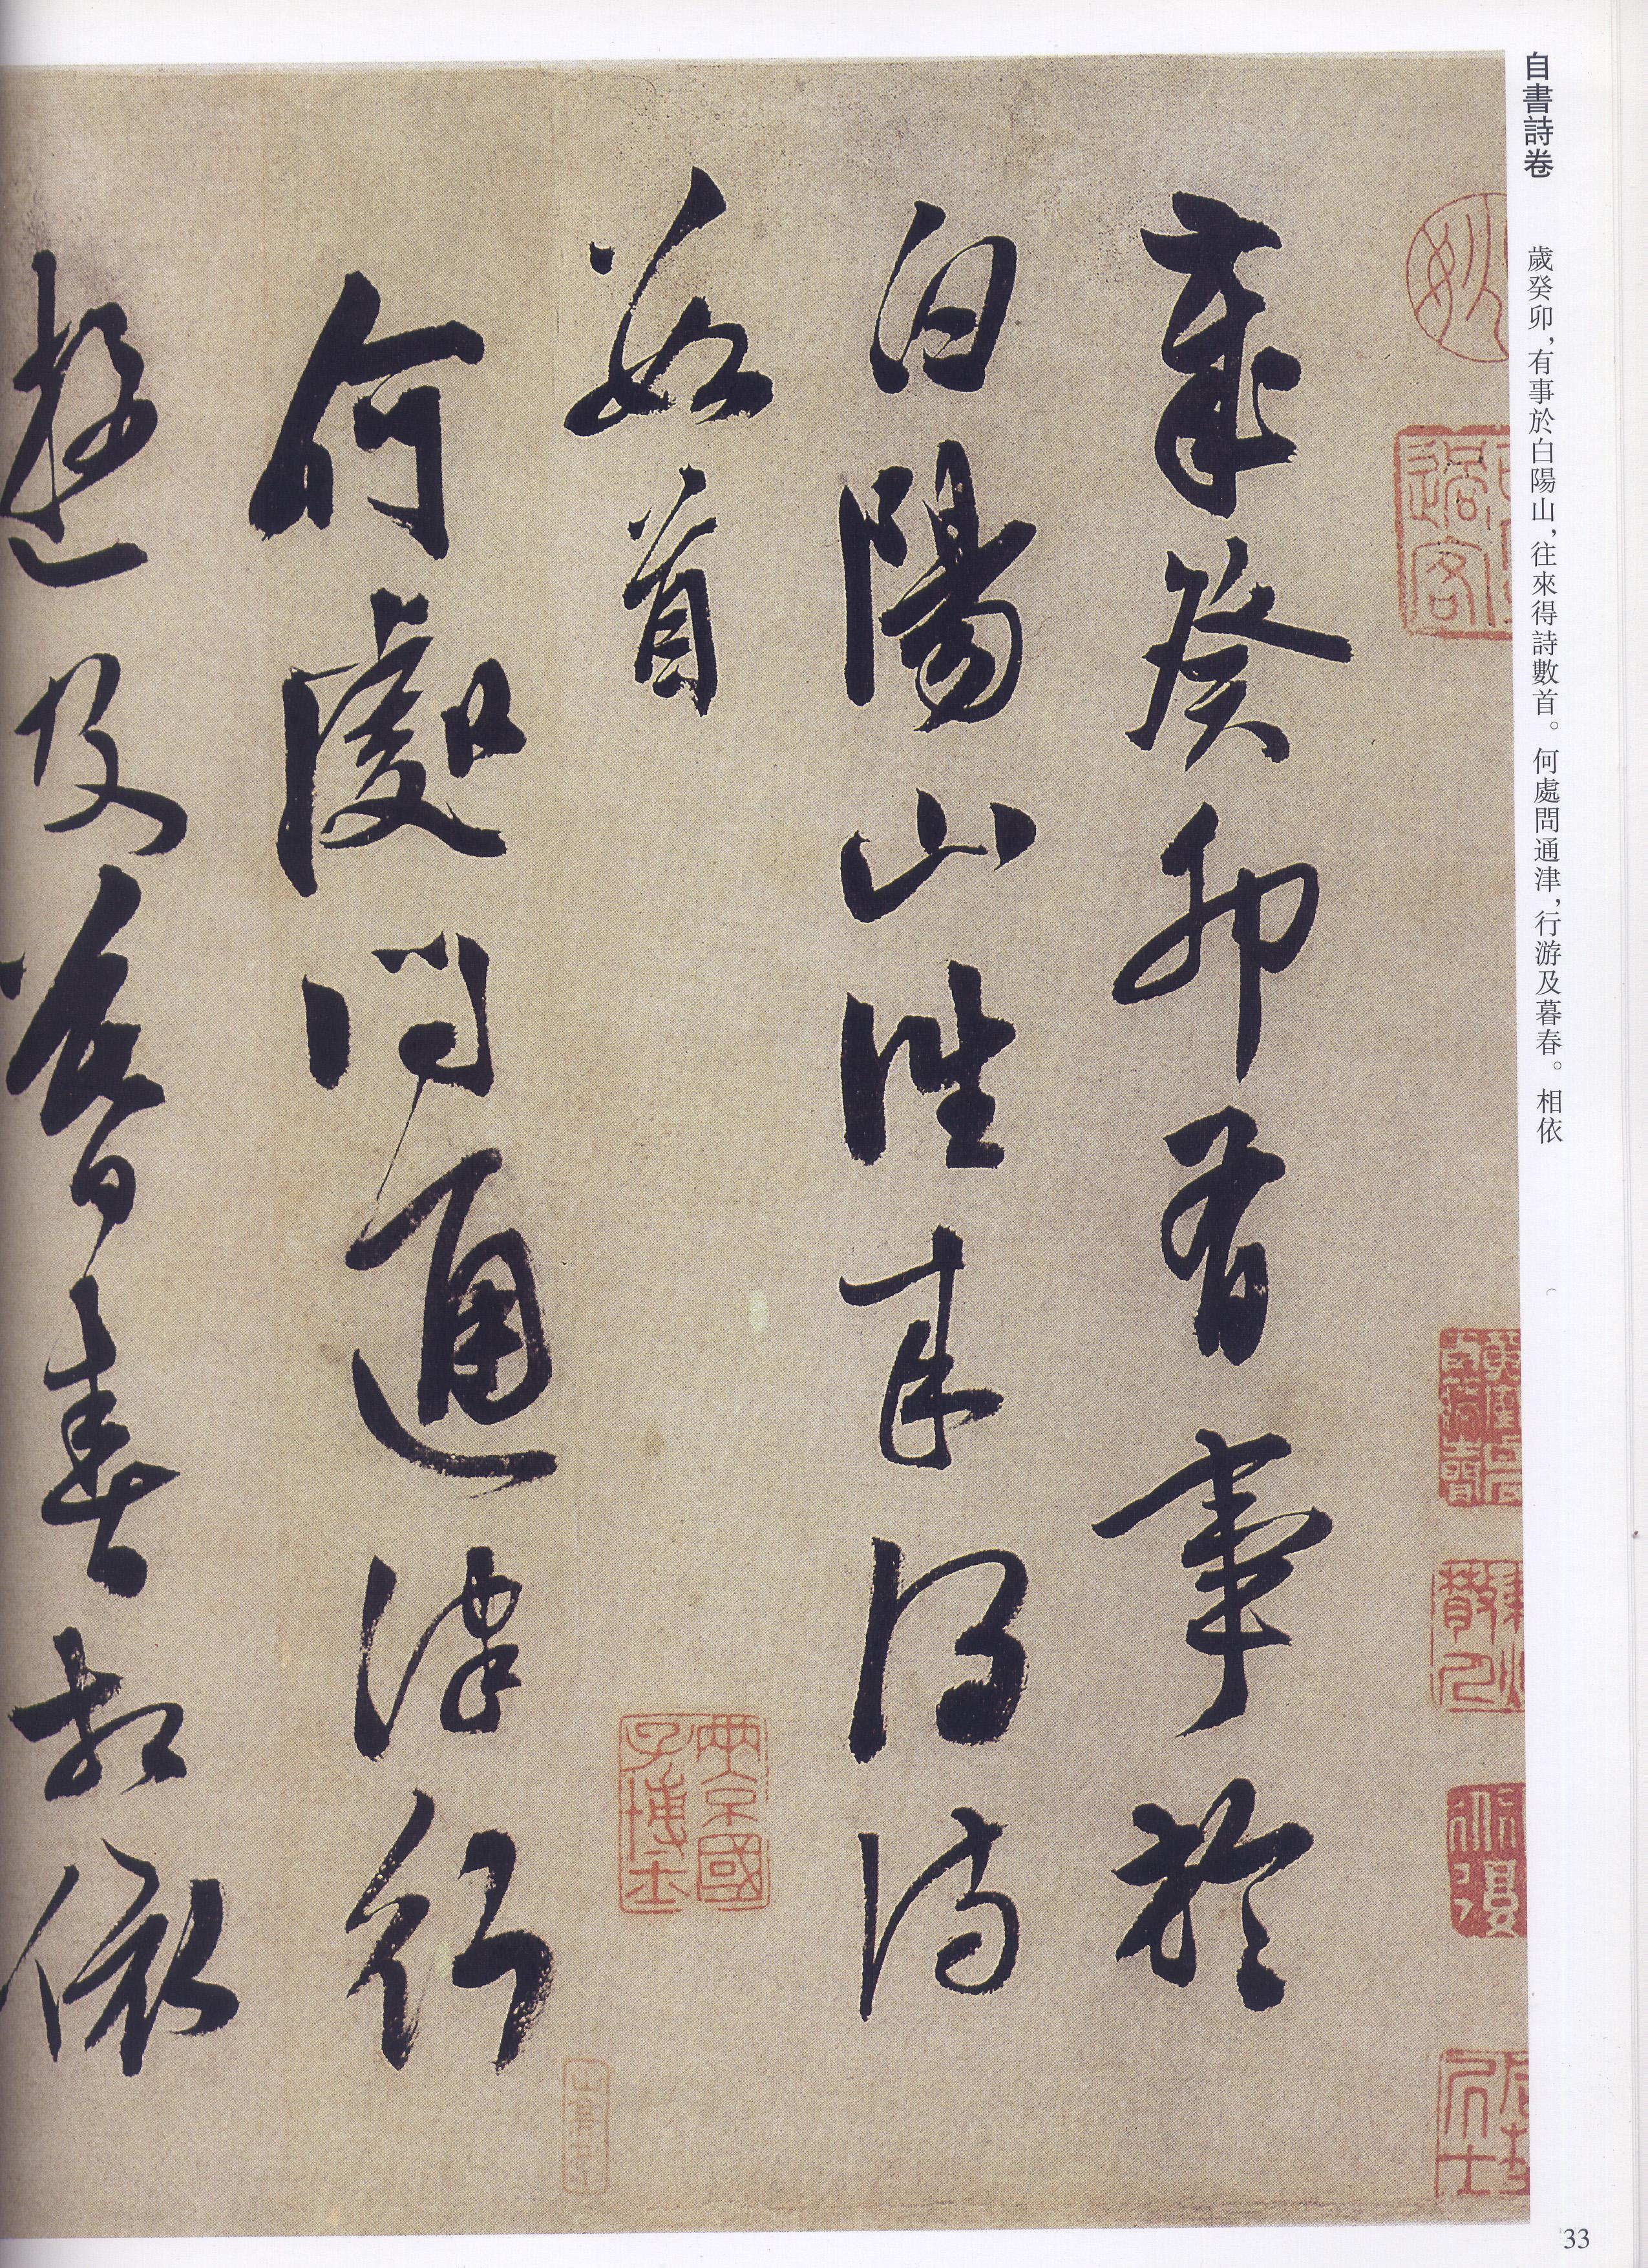 自書詩卷
歲癸卯，有事於白陽山，往來得詩數首。何處問通津，行游及暮春。相依
歲癸卯有事於
白陽山往来得詩
數首
何處問通津行
遊及暮春相依
過客
兩京國
子博士
33